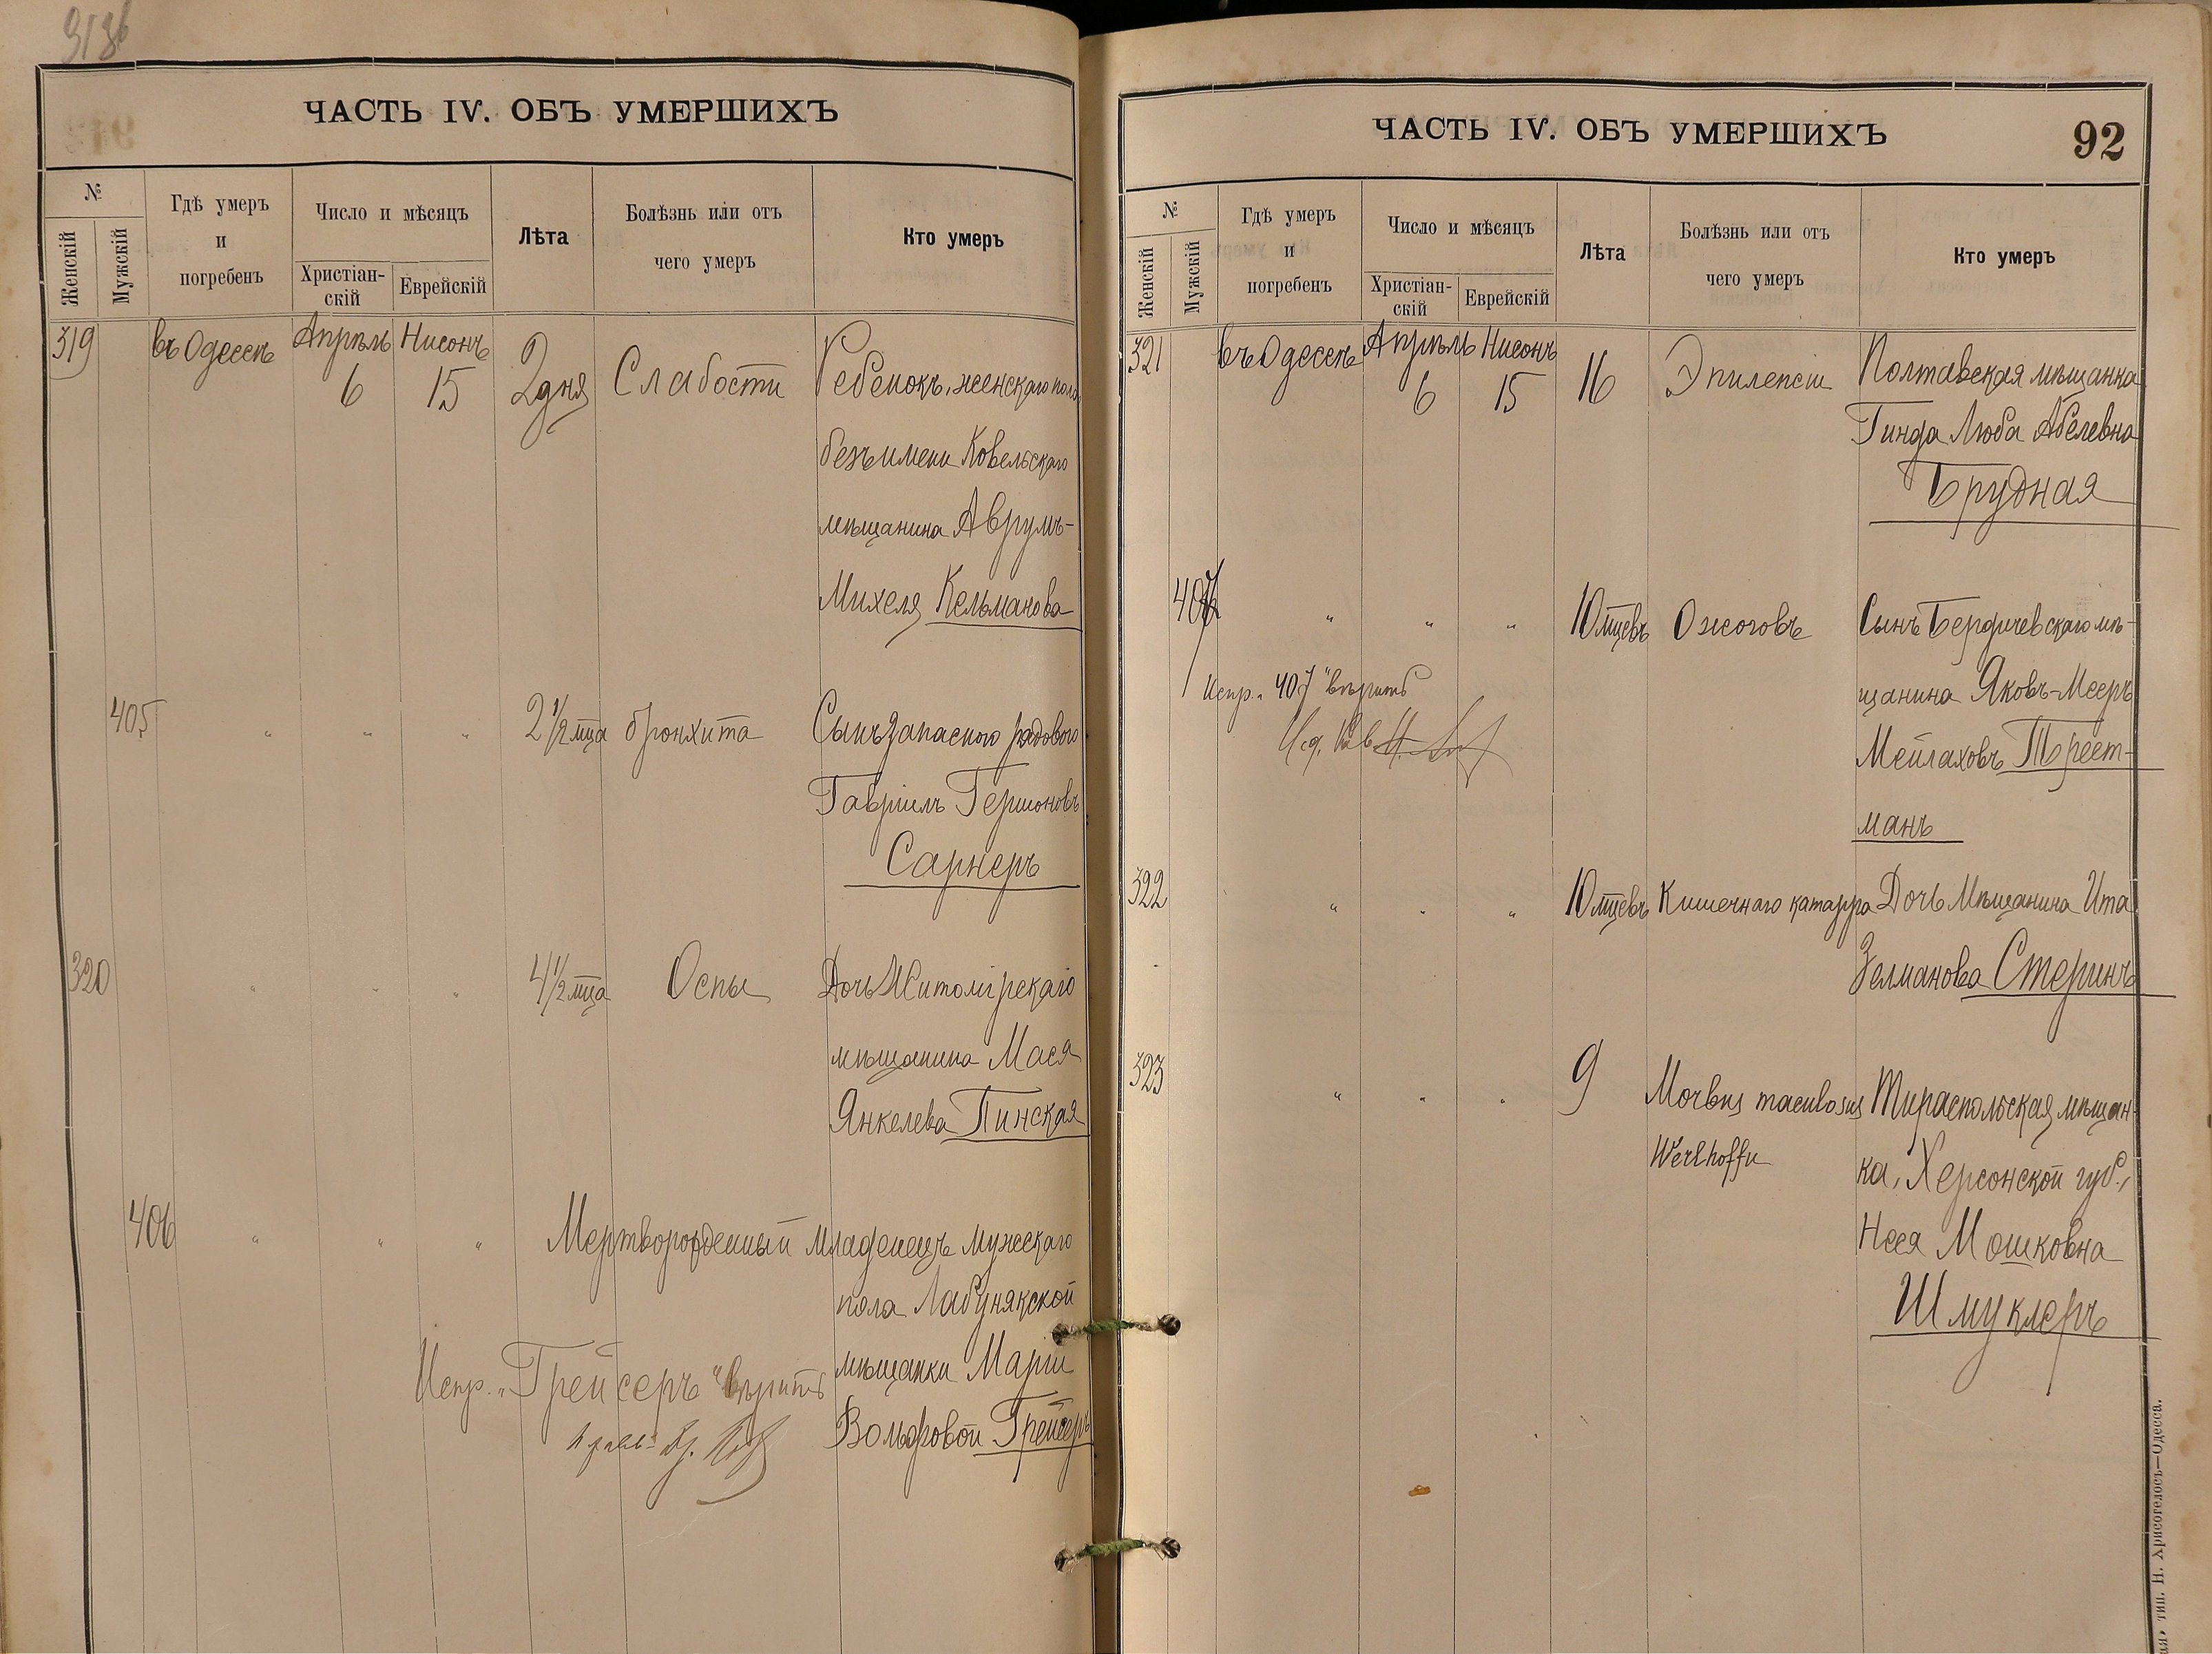 ЧАСТЬ IV. ОБЪ УМЕРШИХЪ
№
Женскій
Мужскій
Гдѣ умеръ
и
погребенъ
Число и мѣсяцъ
Христіан-
скій
Еврейскій
Лѣта
Болѣзнь или отъ
чего умеръ
Кто умеръ
319 въ Одессѣ Апрѣль 6 Нисонъ 15 2 дня Слабости Ребенокъ, женскаго пола
безъ имени Ковельскаго
мѣщанина Аврумъ-
Михеля Кельманова
405 " " " 2 1/2 мца бронхита Сынъ запасного рядового
Гавріилъ Гершоновъ
Сарнеръ
320 " " " 4 1/2 мца Оспы Дочь Житомірскаго
мѣщанина Мася
Янкелева Пинская
406 " " " Мертворожденный младенецъ мужескаго
пола Лабунякской
мѣщанки Маріи
Вольфовой Грейсеръ
Испр. "Грейсеръ" вѣрить
ЧАСТЬ IV. ОБЪ УМЕРШИХЪ
92
№
Женскій
Мужскій
Гдѣ умеръ
и
погребенъ
Число и мѣсяцъ
Христіан-
скій
Еврейскій
Лѣта
Болѣзнь или отъ
чего умеръ
Кто умеръ
321 въ Одессѣ Апрѣль 6 Нисонъ 15 16 Эпилепсіи Полтавская мѣщанка
Гинда Люба Абелевна
Брудная
407 " " " 10 мцевъ Ожоговъ Сынъ Бердичевскаго мѣ-
щанина Яковъ-Мееръ
Мейлаховъ Треет-
манъ
Испр. "407" вѣрить
322 " " " 10 мцевъ Кишечнаго катарра Дочь Мѣщанина Ита
Зелманова Стеринъ
323 " " " 9 Morbus maculosus Тираспольская мѣщан-
Werlhoffii ка, Херсонской губ.,
Неся Мошковна
Шмуклеръ
тип. Н. Хрисогелосъ—Одесса.